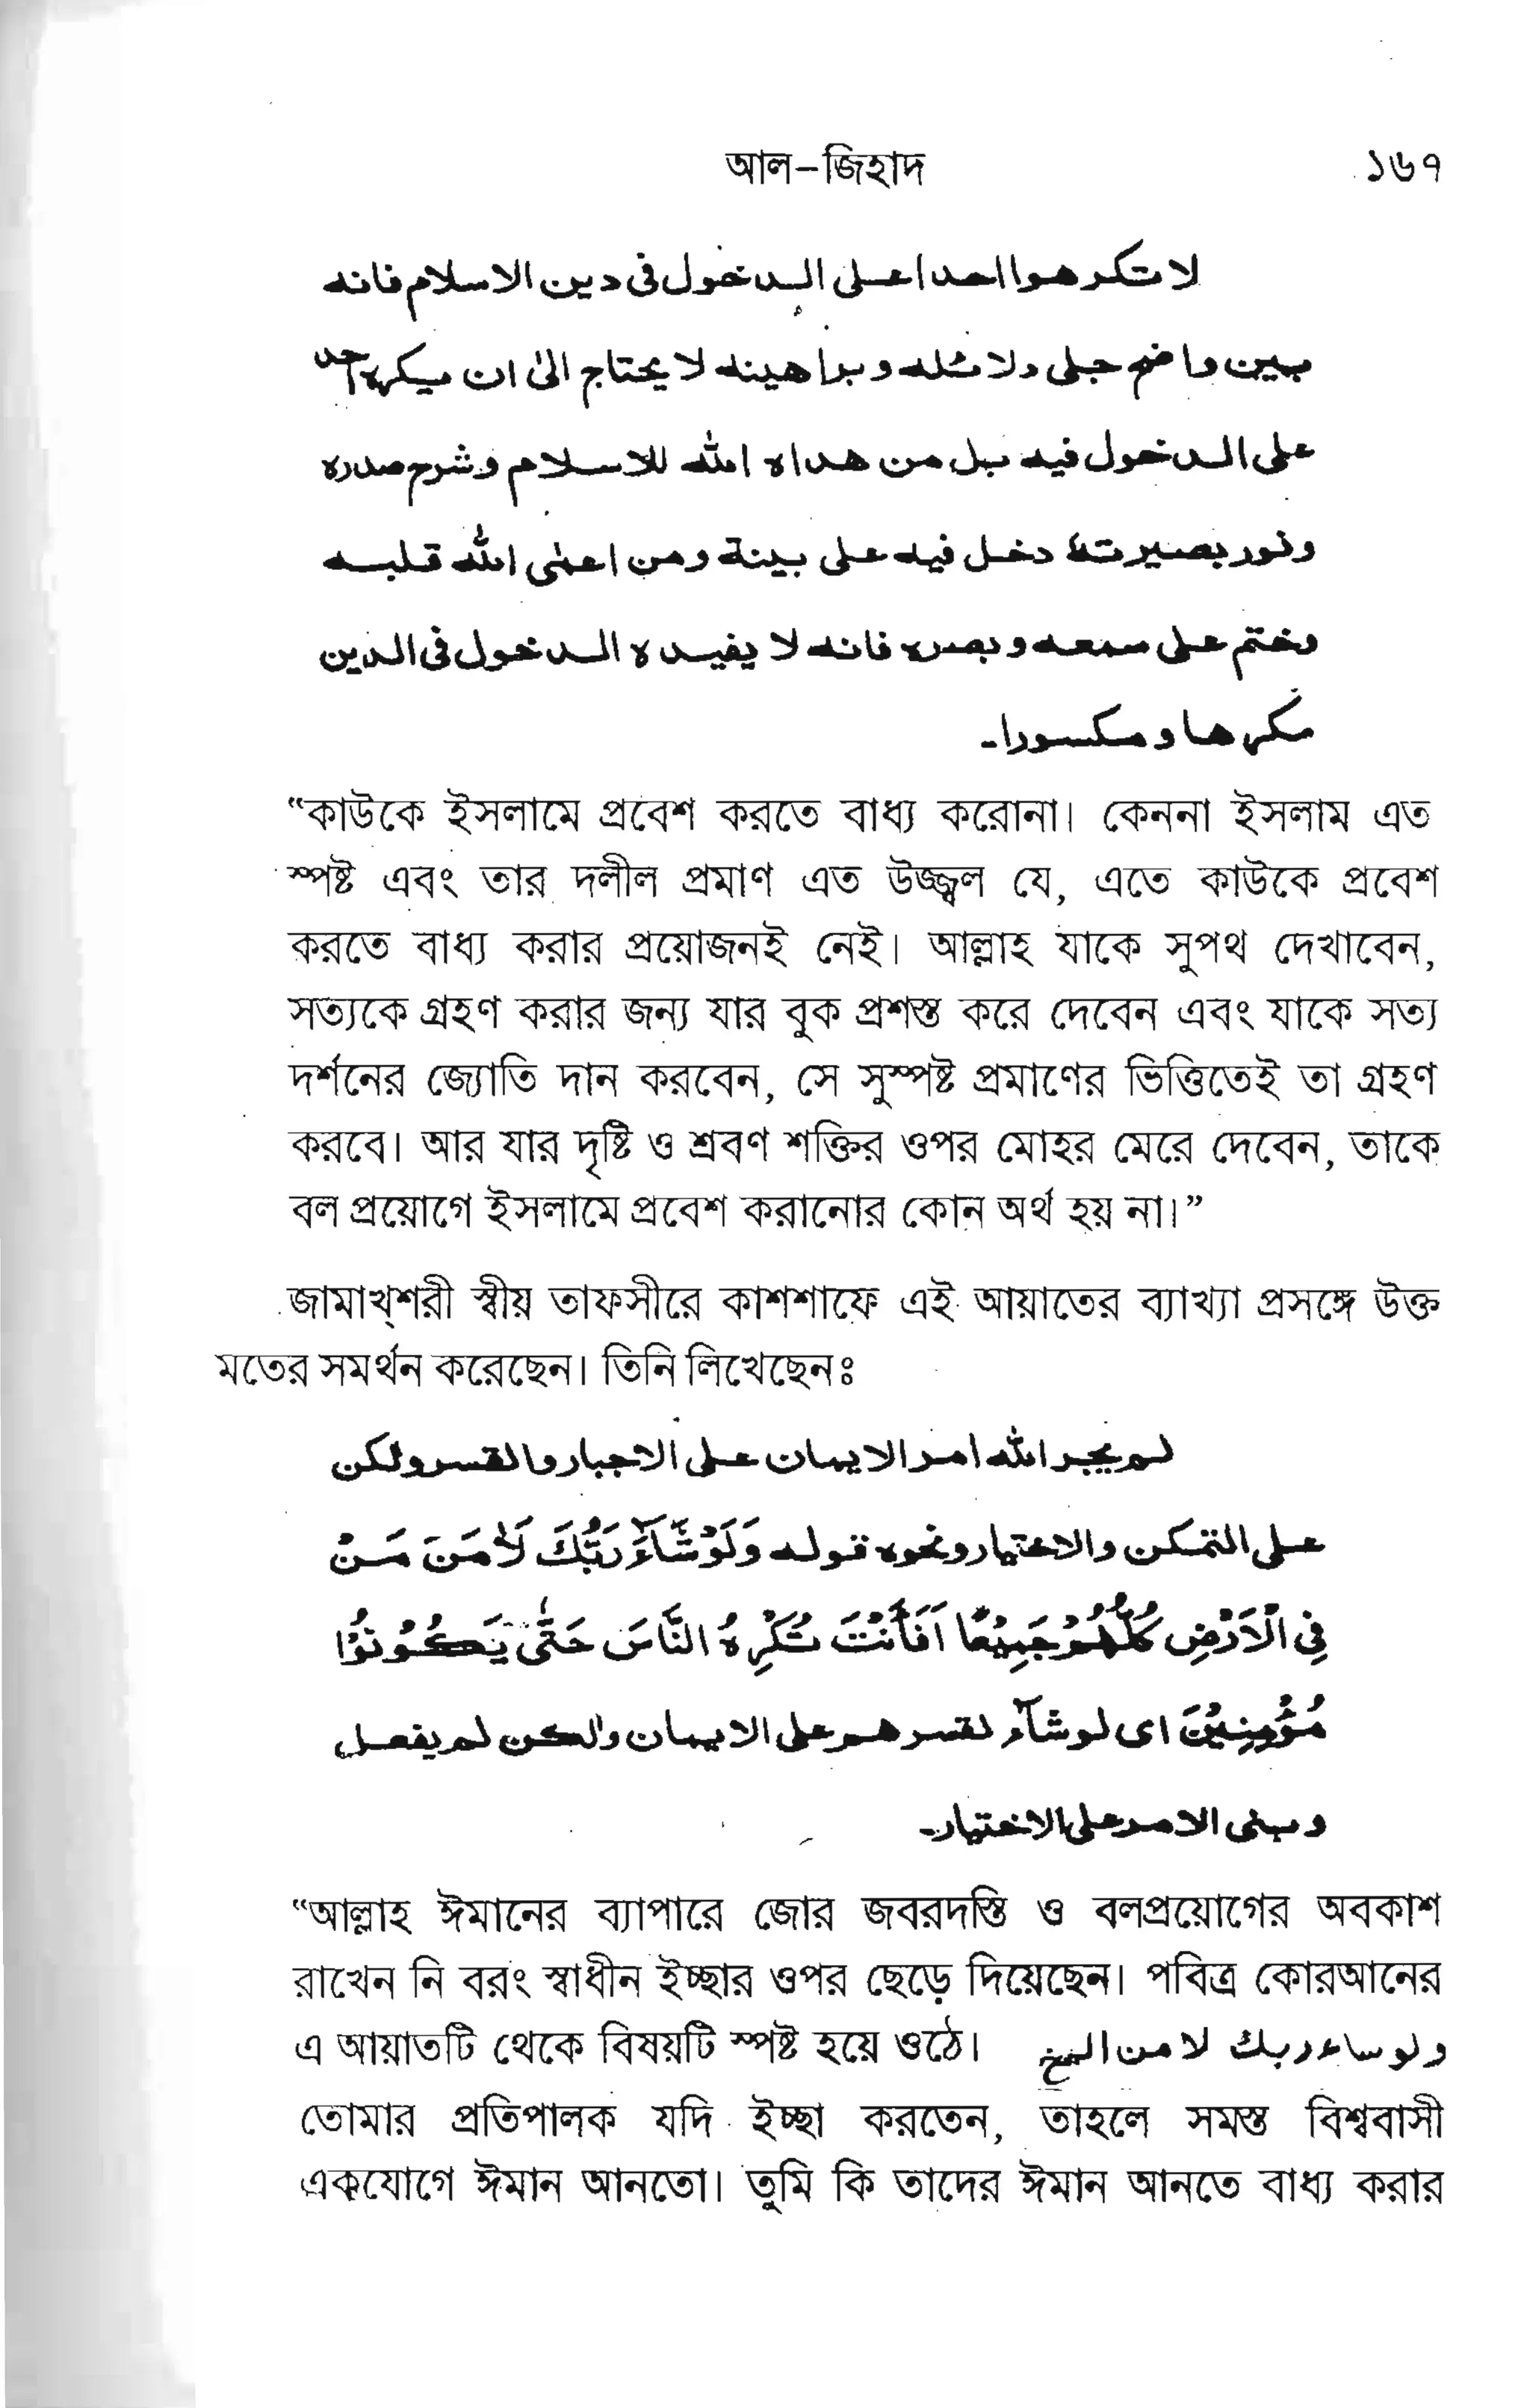 আল-জিহাদ ১৬৭
لا تكرهوا احدا على الدخول فى دين الاسلام فانه
بين واضح جلى دلائله وبراهينه لا يحتاج الىٰ ان يكره احد
على الدخول فيه بل من هداه الله للاسلام وشرح صدره
ونور بصيرته دخل فيه على بينة ومن اعمٰى الله قلبه
وختم على سمعه وبصره فانه لا يفيده الدخول فى الدين
مكرها ومكسورا-
“কাউকে ইসলামে প্রবেশ করতে বাধ্য করোনা। কেননা ইসলাম এত
স্পষ্ট এবং তার দলীল প্রমাণ এত উজ্জ্বল যে, এতে কাউকে প্রবেশ
করতে বাধ্য করার প্রয়োজনই নেই। আল্লাহ যাকে সুপথ দেখাবেন,
সত্যকে গ্রহণ করার জন্য যার বুক প্রশস্ত করে দেবেন এবং যাকে সত্য
দর্শনের জ্যোতি দান করবেন, সে সুস্পষ্ট প্রমাণের ভিত্তিতেই তা গ্রহণ
করবে। আর যার দৃষ্টি ও শ্রবণ শক্তির ওপর মোহর মেরে দেবেন, তাকে
বল প্রয়োগে ইসলামে প্রবেশ করানোর কোন অর্থ হয় না।”
জামাখ্শরী স্বীয় তাফসীরে কাশশাফে এই আয়াতের ব্যাখ্যা প্রসঙ্গে উক্ত
মতের সমর্থন করেছেন। তিনি লিখেছেনঃ
لم يجبر الله امر الايمان على الاجبار والقسر ولكن
على التمكن والاختيار ونحوه قوله وَلَوْ شَآءَ رَبُّكَ لَاٰمَنَ مَنْ
فِى الْاَرْضِ كُلُّهُمْ جَمِيْعًا اَفَاَنْتَ تُكْرِهُ النَّاسَ حَتّٰى يَكُوْنُوْا
مُؤْمِنِيْنَ اى لو شآء لقسرهم على الايمان ولٰكن لم يفعل
وبنى الامر على الاختيار-
“আল্লাহ ঈমানের ব্যাপারে জোর জবরদস্তি ও বলপ্রয়োগের অবকাশ
রাখেন নি বরং স্বাধীন ইচ্ছার ওপর ছেড়ে দিয়েছেন। পবিত্র কোরআনের
এ আয়াতটি থেকে বিষয়টি স্পষ্ট হয়ে ওঠে। ولو ساء ربك لا من الخ
তোমার প্রতিপালক যদি ইচ্ছা করতেন, তাহলে সমস্ত বিশ্ববাসী
একযোগে ঈমান আনতো। তুমি কি তাদের ঈমান আনতে বাধ্য করার